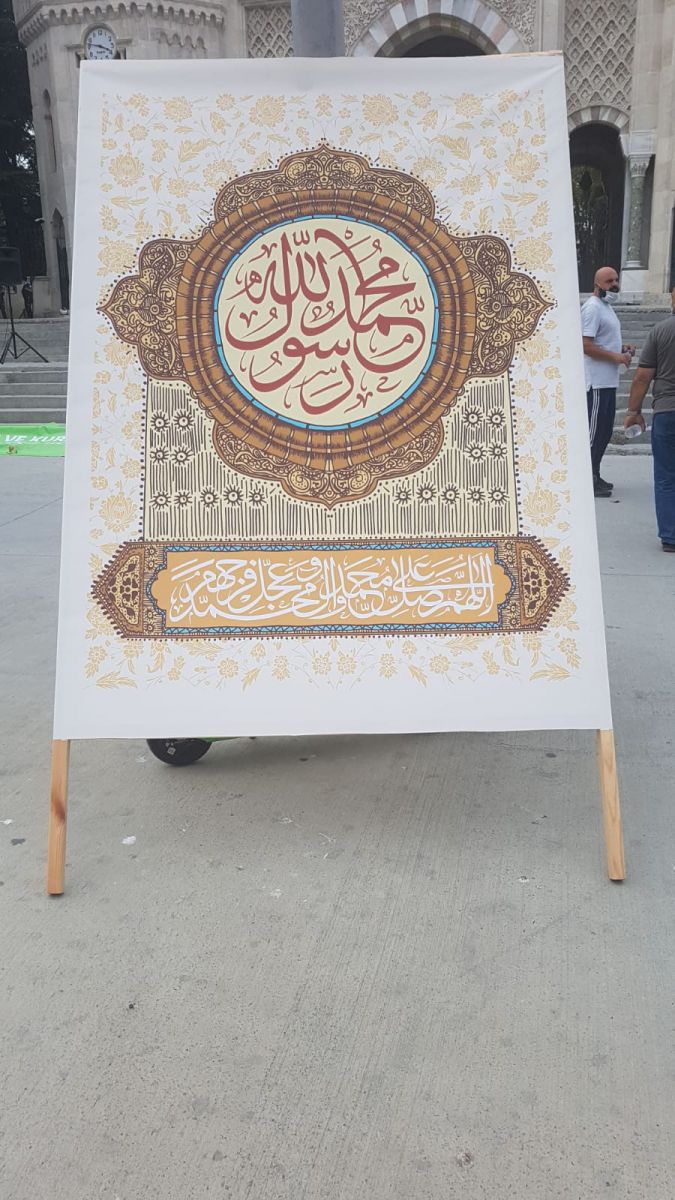 محمد رسول الله
اللهم صل علی محمد وآل محمد وعجل فرجهم
VE KUR